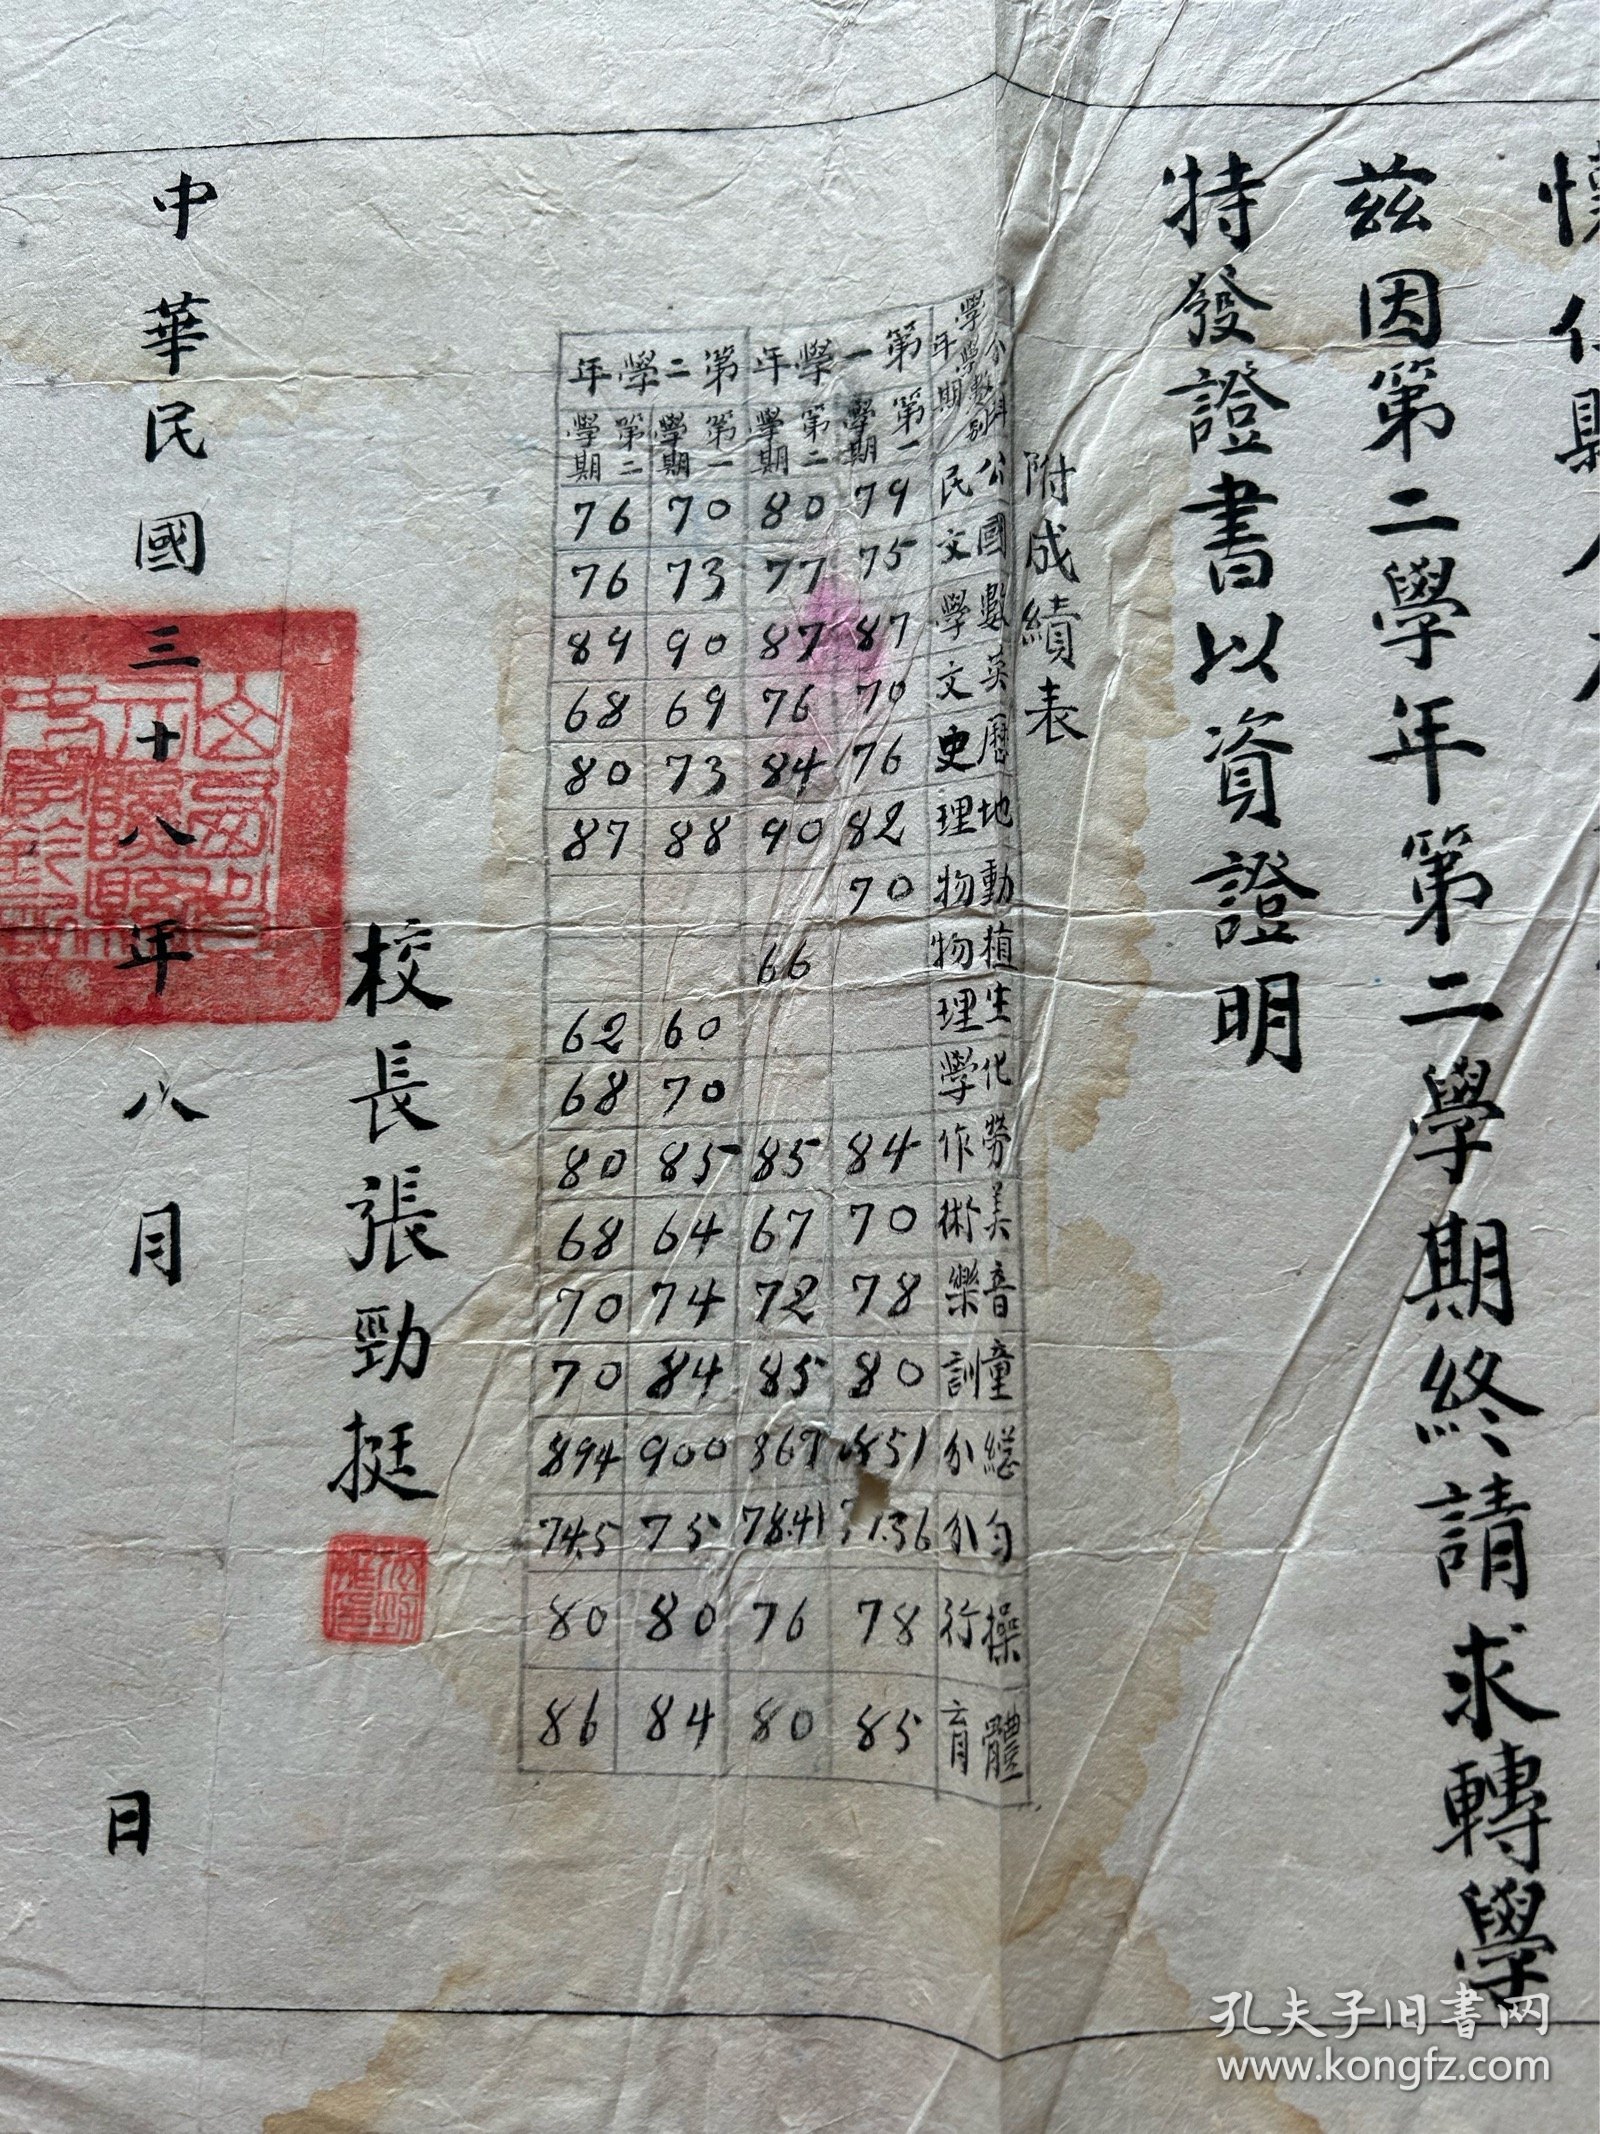 懷仁縣人
茲因第二學年第二學期終請求轉學
特發證書以資證明
附成績表
學年學期 分數 科別 公民 國文 數學 英文 歷史 地理 動物 植物 生理 化學 勞作 美術 音樂 童訓 總分 勻分 操行 體育
第一學年 第一學期 79 75 87 70 76 82 70 84 70 78 80 851 78 85
第二學期 80 77 87 76 84 90 66 85 67 72 85 867 78.41 76 80
第二學年 第一學期 70 73 90 69 73 88 60 70 85 64 74 84 900 75 80 84
第二學期 76 76 89 68 80 87 62 68 80 68 70 70 894 74.5 80 86
校長張勁挺
中華民國三十八年八月 日
孔夫子旧书网
www.kongfz.com